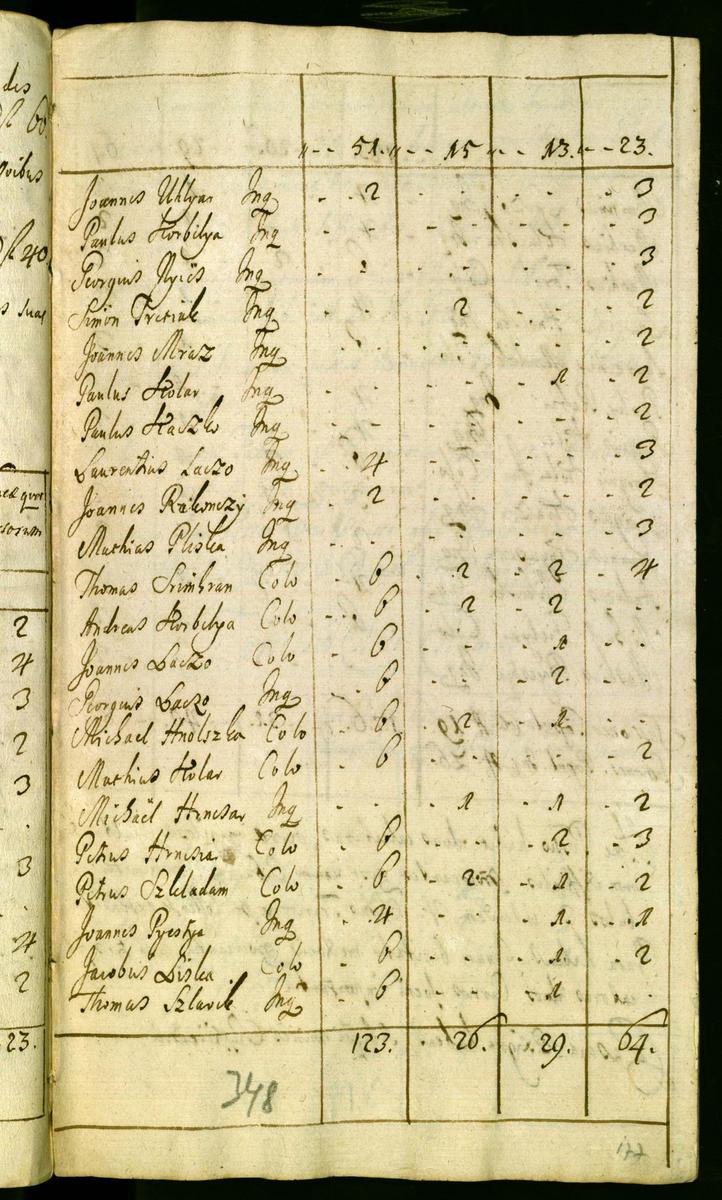 des
60.
vibus
40
s suas
2
4
3
2
3
3
4
2
23.
"-- 51. "-- 15 "-- 13. "-- 23.
Joannes Uhlyar Inq - - 2 - - - - 3
Paulus Horbilya Inq - - - - - - 3
Georgius Inq - - - - - - 3
Simon Tretiak Inq - - - 2 - - - 2
Joannes Mraz Inq - - - - - - 2
Paulus Kolar Inq - - - - - 1 - 2
Paulus Haczko Inq - - - - - - 2
Laurentius Laczo Inq - 4 - - - - - 3
Joannes Inq - 2 - - - - - 2
Mathias Pliska Inq - - - - - - - 3
Thomas Srimhran Colo - 6 - 2 - 2 - 4
Andreas Horbilya Colo - 6 - 2 - 2 - -
Joannes Laczo Colo - 6 - - - 1 - -
Georgius Laczo Inq - 6 - - - 2 - -
Michael Hnolszka Colo - 6 - 2 - 1 - -
Mathias Kolar Colo - 6 - - - - - 2
Michaël Hrncsar Inq - - - 1 - 1 - 2
Petrus Hrncsiar Colo - 6 - - - 2 - 3
Petrus Szleladam Colo - 6 - 2 - 1 - 2
Joannes Pyestya Inq - 4 - - - 1 - 1
Jacobus Liska Colo - 6 - - - 1 - 2
Thomas Szlavik Inq - 6 - - - 1 - -
123. - 26. - 29. - 64.
348
177